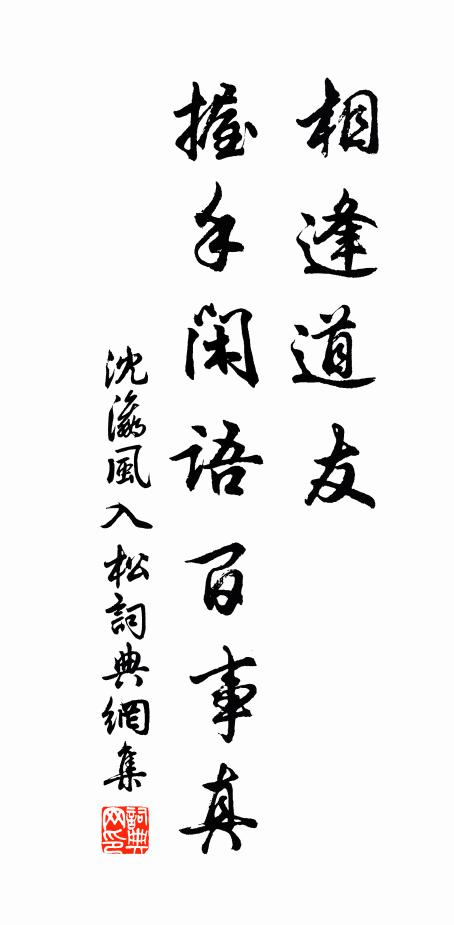 相逢道友
握手閑語百事真
沈瀛風入松詞典網集
詞典
网印